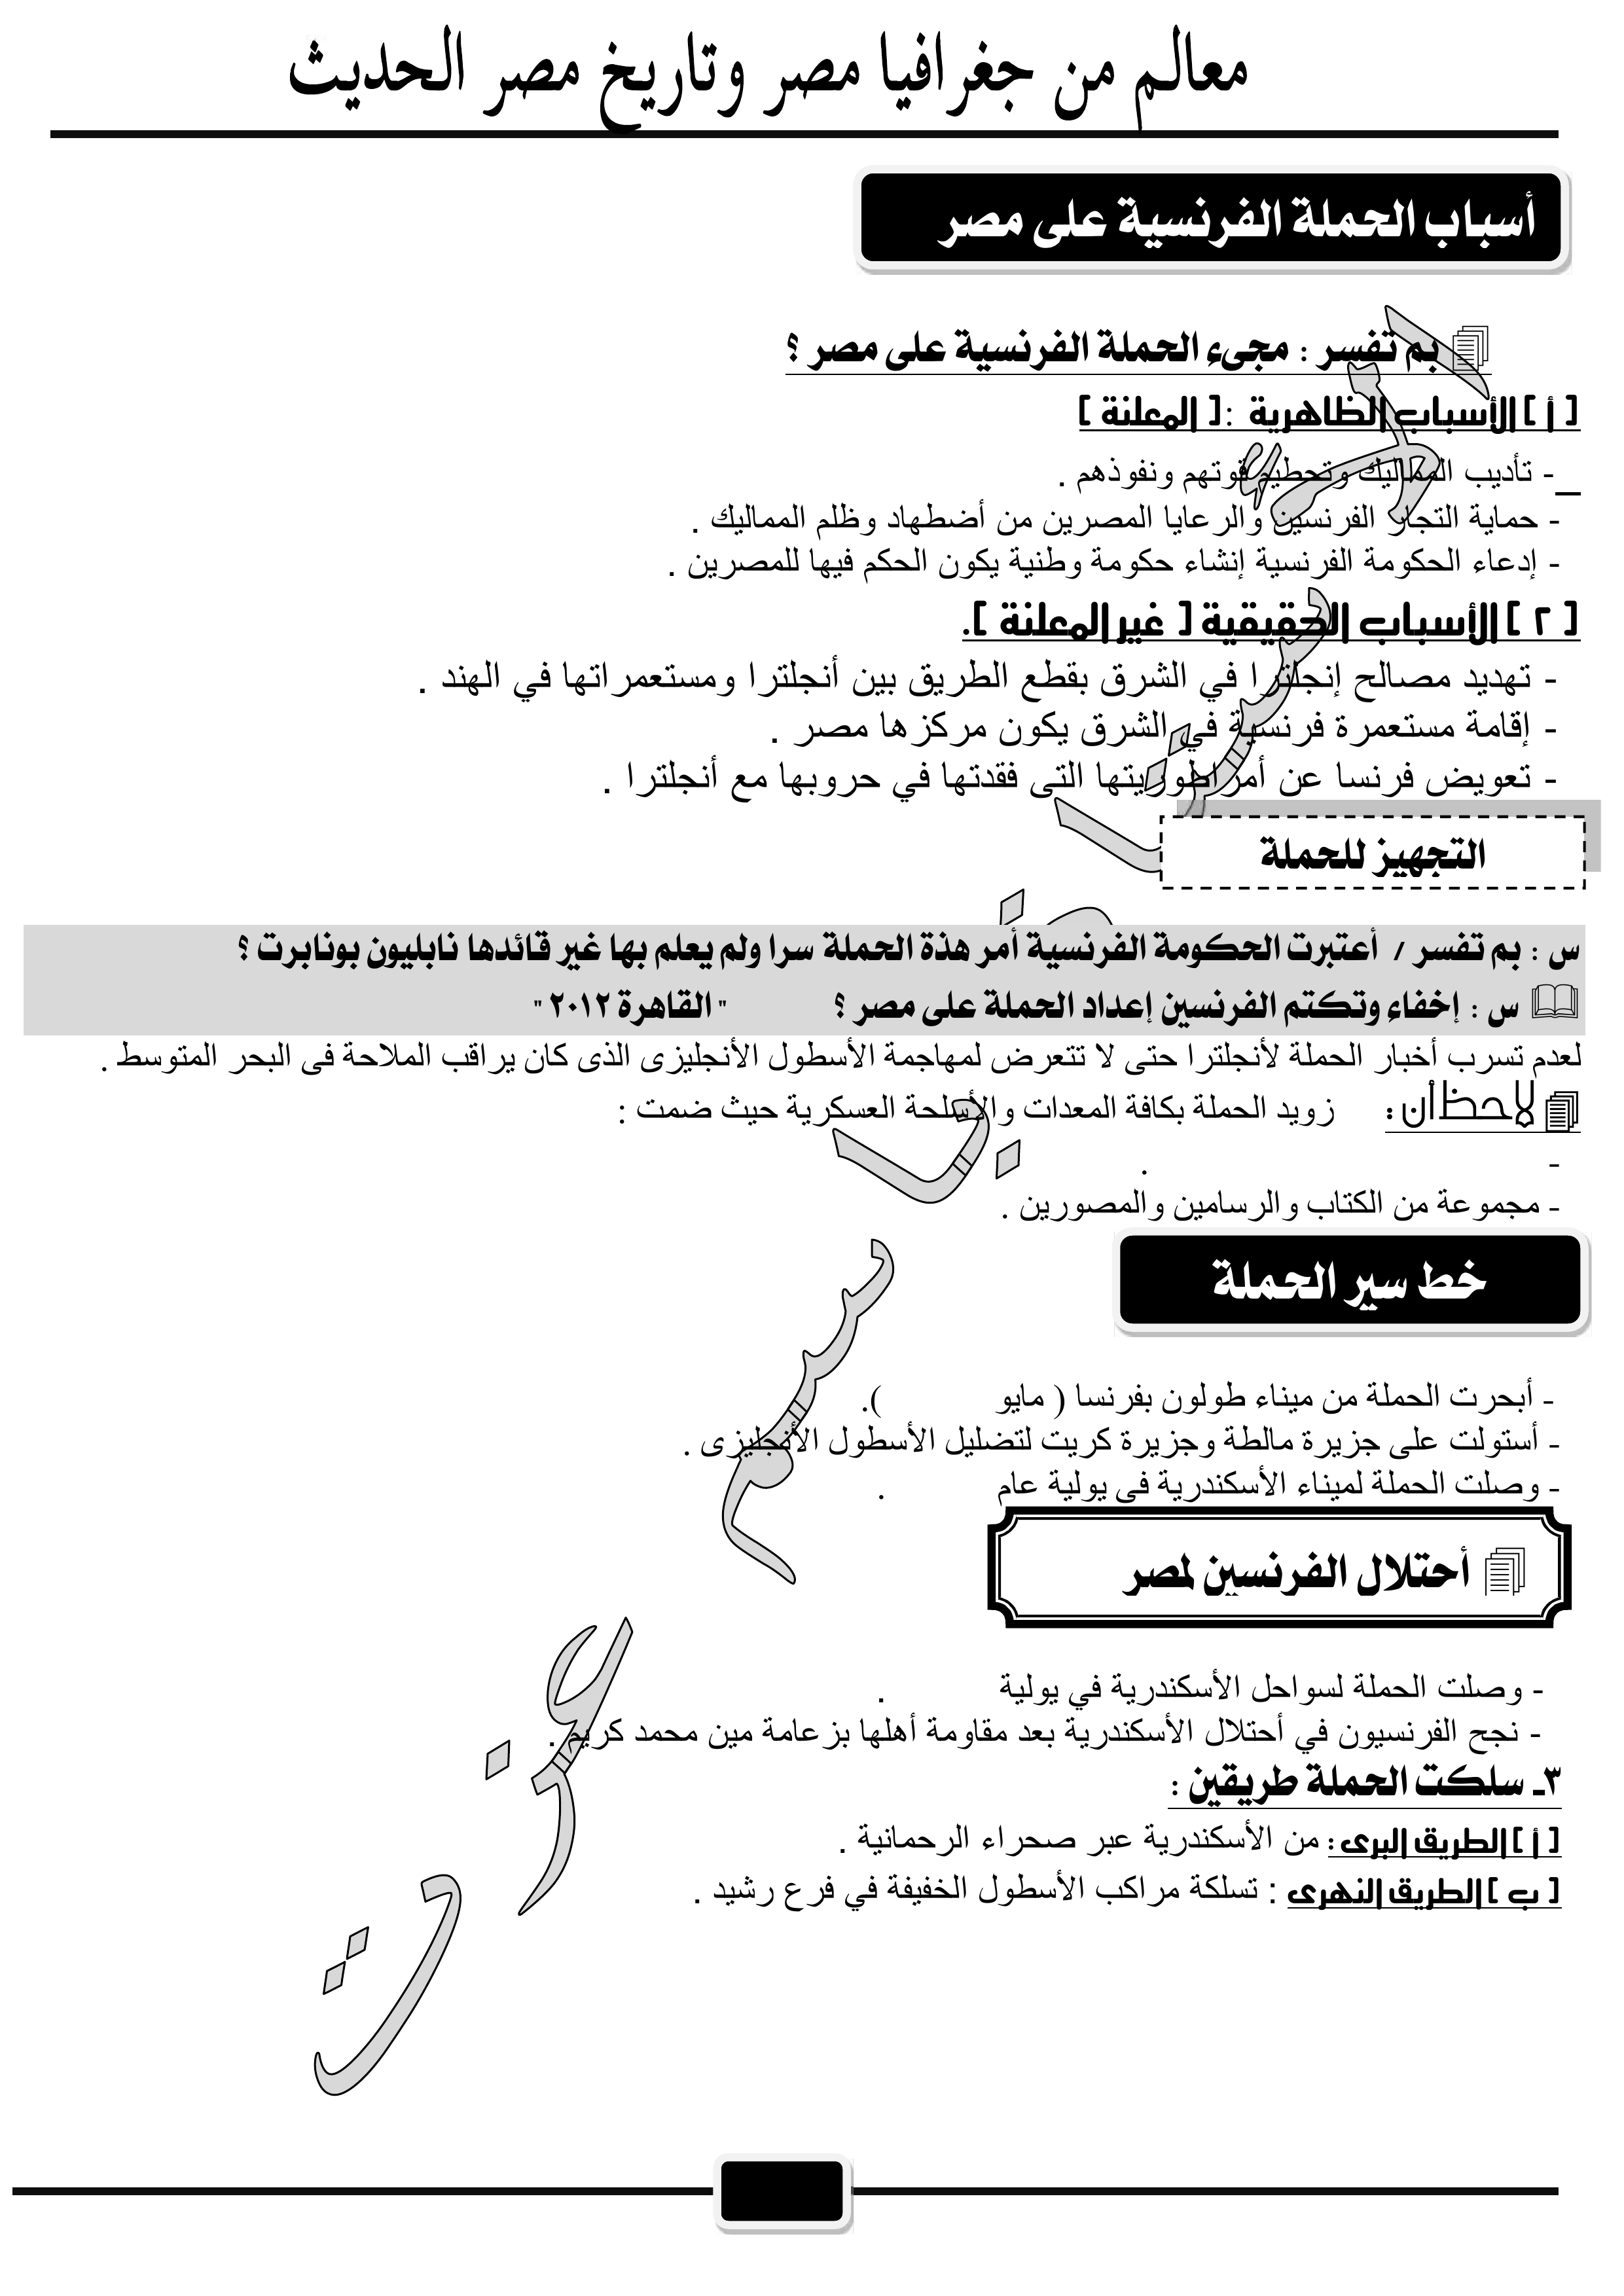 معالم من جغرافيا مصر وتاريخ مصر الحديث
أسباب الحملة الفرنسية على مصر
بم تفسر : مجىء الحملة الفرنسية على مصر ؟
[ أ ] الأسباب الظاهرية : [ المعلنة ]
- تأديب المماليك وتحطيم قوتهم ونفوذهم .
- حماية التجار الفرنسين والرعايا المصرين من أضطهاد وظلم المماليك .
- إدعاء الحكومة الفرنسية إنشاء حكومة وطنية يكون الحكم فيها للمصرين .
[ ٢ ] الأسباب الحقيقية [ غير المعلنة ].
- تهديد مصالح إنجلترا في الشرق بقطع الطريق بين أنجلترا ومستعمراتها في الهند .
- إقامة مستعمرة فرنسية في الشرق يكون مركزها مصر .
- تعويض فرنسا عن أمراطوريتها التى فقدتها في حروبها مع أنجلترا .
التجهيز للحملة
س : بم تفسر / أعتبرت الحكومة الفرنسية أمر هذة الحملة سرا ولم يعلم بها غير قائدها نابليون بونابرت ؟
س : إخفاء وتكتم الفرنسين إعداد الحملة على مصر ؟ " القاهرة ٢٠١٢ "
لعدم تسرب أخبار الحملة لأنجلترا حتى لا تتعرض لمهاجمة الأسطول الأنجليزى الذى كان يراقب الملاحة فى البحر المتوسط .
لاحظ أن : زويد الحملة بكافة المعدات والأسلحة العسكرية حيث ضمت :
- .
- مجموعة من الكتاب والرسامين والمصورين .
خط سير الحملة
- أبحرت الحملة من ميناء طولون بفرنسا ( مايو ).
- أستولت على جزيرة مالطة وجزيرة كريت لتضليل الأسطول الأنجليزى .
- وصلت الحملة لميناء الأسكندرية فى يولية عام .
أحتلال الفرنسين لمصر
- وصلت الحملة لسواحل الأسكندرية في يولية .
- نجح الفرنسيون في أحتلال الأسكندرية بعد مقاومة أهلها بزعامة مين محمد كريم .
٣ـ سلكت الحملة طريقين :
[ أ ] الطريق البرى : من الأسكندرية عبر صحراء الرحمانية .
[ ب ] الطريق النهرى : تسلكة مراكب الأسطول الخفيفة في فرع رشيد .